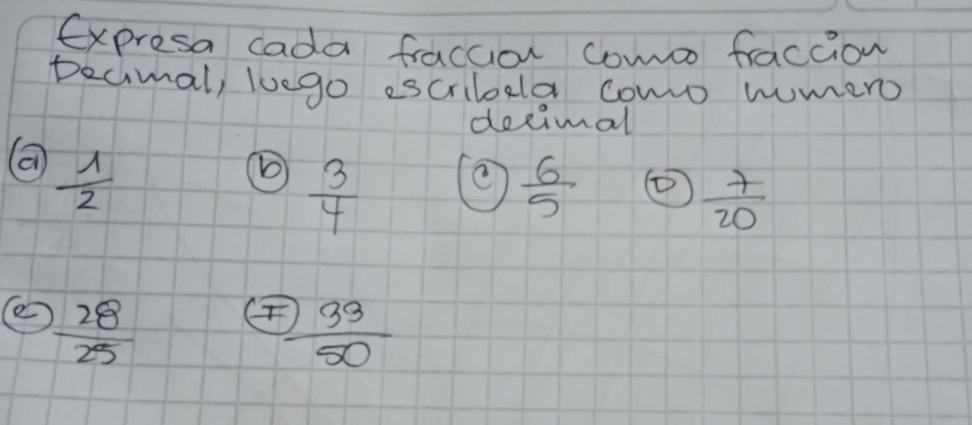 Expresa cada fraccion como fraccion
Decimal, luego escribela como numero
decimal
a 1/2 b 3/4 c 6/5 D 7/20
e 28/25 F 33/50